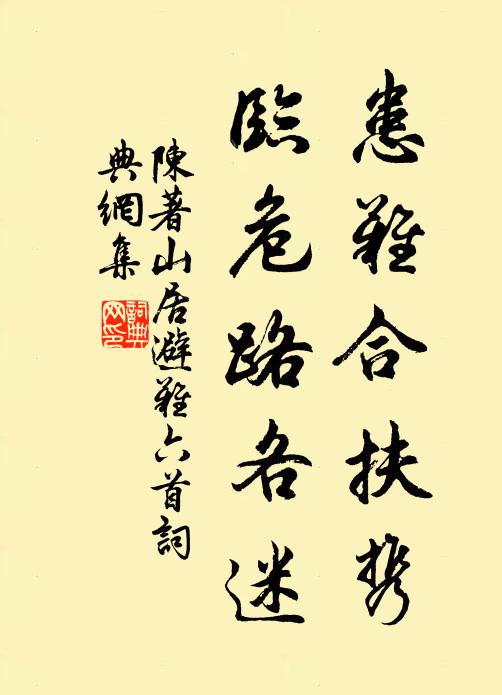 患難合扶携
臨危路各迷
陳著山居避難六首詞
典網集
詞典
网印